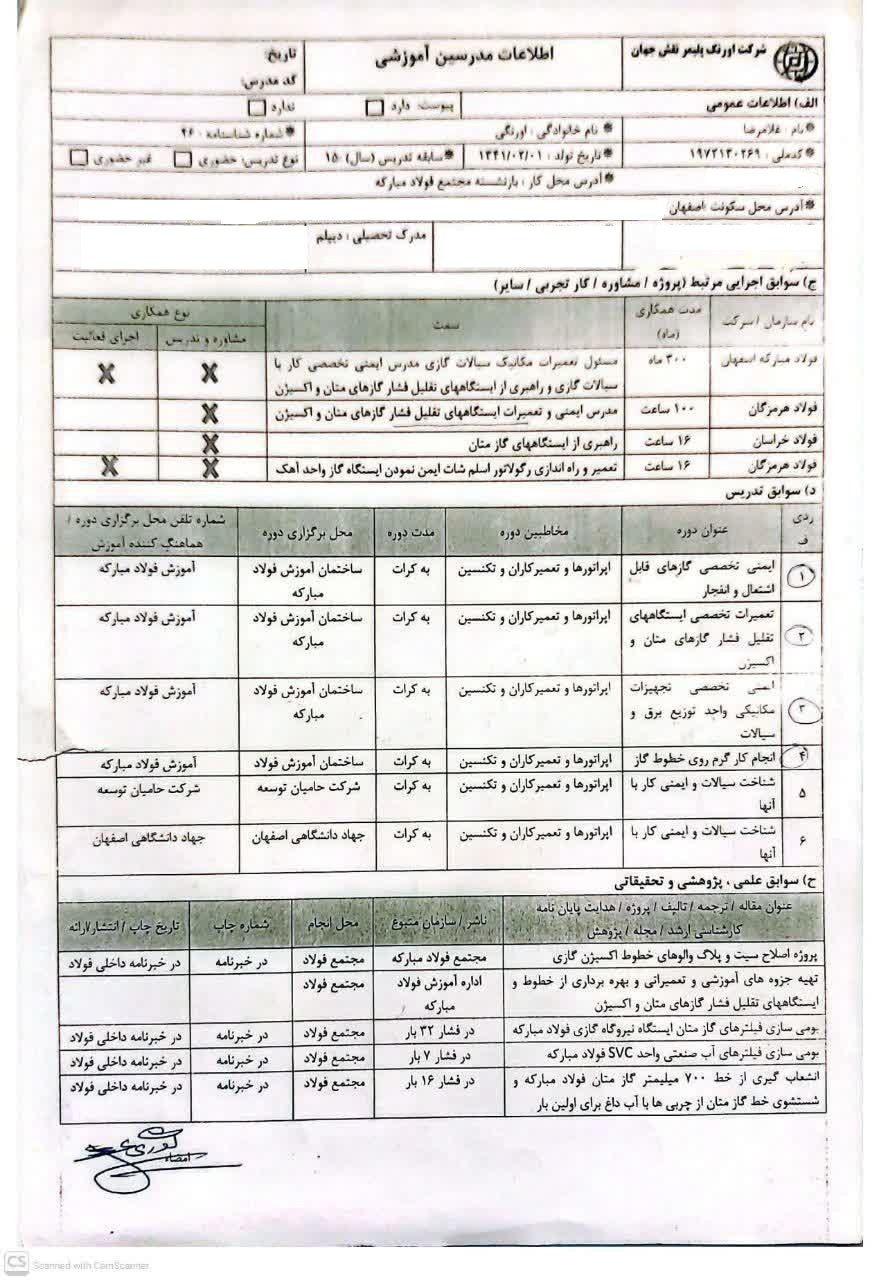 شرکت اورنگ پلیمر نقش جهان
اطلاعات مدرسین آموزشی
تاریخ:
کد مدرس:
الف) اطلاعات عمومی
پیوست: دارد
ندارد
نام: غلامرضا
نام خانوادگی: اورنگی
شماره شناسنامه: ۴۶
کدملی: ۱۹۷۲۱۳۰۲۶۹
تاریخ تولد: ۱۳۴۱/۰۲/۰۱
سابقه تدریس (سال): ۱۵
نوع تدریس: حضوری
غیر حضوری
آدرس محل کار: بازنشسته مجتمع فولاد مبارکه
آدرس محل سکونت: اصفهان
مدرک تحصیلی: دیپلم
ج) سوابق اجرایی مرتبط (پروژه / مشاوره / کار تجربی / سایر)
نام سازمان / شرکت
مدت همکاری (ماه)
سمت
نوع همکاری
مشاوره و تدریس
اجرای فعالیت
فولاد مبارکه اصفهان
۳۰۰ ماه
مسئول تعمیرات مکانیک سیالات گازی مدرس ایمنی تخصصی کار با
سیالات گازی و راهبری از ایستگاههای تقلیل فشار گازهای متان و اکسیژن
X X
فولاد هرمزگان
۱۰۰ ساعت
مدرس ایمنی و تعمیرات ایستگاههای تقلیل فشار گازهای متان و اکسیژن
X
فولاد خراسان
۱۶ ساعت
راهبری از ایستگاههای گاز متان
X
فولاد هرمزگان
۱۶ ساعت
تعمیر و راه اندازی رگولاتور اسلم شات ایمن نمودن ایستگاه گاز واحد آهک
X X
د) سوابق تدریس
ردی
ف
عنوان دوره
مخاطبین دوره
مدت دوره
محل برگزاری دوره
شماره تلفن محل برگزاری دوره /
هماهنگ کننده آموزش
۱
ایمنی تخصصی گازهای قابل
اشتعال و انفجار
اپراتورها و تعمیرکاران و تکنسین
به کرات
ساختمان آموزش فولاد
مبارکه
آموزش فولاد مبارکه
۲
تعمیرات تخصصی ایستگاههای
تقلیل فشار گازهای متان و
اکسیژن
اپراتورها و تعمیرکاران و تکنسین
به کرات
ساختمان آموزش فولاد
مبارکه
آموزش فولاد مبارکه
۳
ایمنی تخصصی تجهیزات
مکانیکی واحد توزیع برق و
سیالات
اپراتورها و تعمیرکاران و تکنسین
به کرات
ساختمان آموزش فولاد
مبارکه
آموزش فولاد مبارکه
۴
انجام کار گرم روی خطوط گاز
اپراتورها و تعمیرکاران و تکنسین
به کرات
ساختمان آموزش فولاد
آموزش فولاد مبارکه
۵
شناخت سیالات و ایمنی کار با
آنها
اپراتورها و تعمیرکاران و تکنسین
به کرات
شرکت حامیان توسعه
شرکت حامیان توسعه
۶
شناخت سیالات و ایمنی کار با
آنها
اپراتورها و تعمیرکاران و تکنسین
به کرات
جهاد دانشگاهی اصفهان
جهاد دانشگاهی اصفهان
ح) سوابق علمی، پژوهشی و تحقیقاتی
عنوان مقاله / ترجمه / تالیف / پروژه / هدایت پایان نامه
کارشناسی ارشد / مجله / پژوهش
ناشر / سازمان متبوع
محل انجام
شماره چاپ
تاریخ چاپ / انتشار/ارائه
پروژه اصلاح سیت و پلاگ والوهای خطوط اکسیژن گازی
مجتمع فولاد مبارکه
مجتمع فولاد
در خبرنامه
در خبرنامه داخلی فولاد
تهیه جزوه های آموزشی و تعمیراتی و بهره برداری از خطوط و
ایستگاههای تقلیل فشار گازهای متان و اکسیژن
اداره آموزش فولاد
مبارکه
مجتمع فولاد
بومی سازی فیلترهای گاز متان ایستگاه نیروگاه گازی فولاد مبارکه
در فشار ۳۲ بار
مجتمع فولاد
در خبرنامه
در خبرنامه داخلی فولاد
بومی سازی فیلترهای آب صنعتی واحد SVC فولاد مبارکه
در فشار ۷ بار
مجتمع فولاد
در خبرنامه
در خبرنامه داخلی فولاد
انشعاب گیری از خط ۷۰۰ میلیمتر گاز متان فولاد مبارکه و
شستشوی خط گاز متان از چربی ها با آب داغ برای اولین بار
در فشار ۱۶ بار
مجتمع فولاد
در خبرنامه
در خبرنامه داخلی فولاد
امضاء
CS Scanned with CamScanner